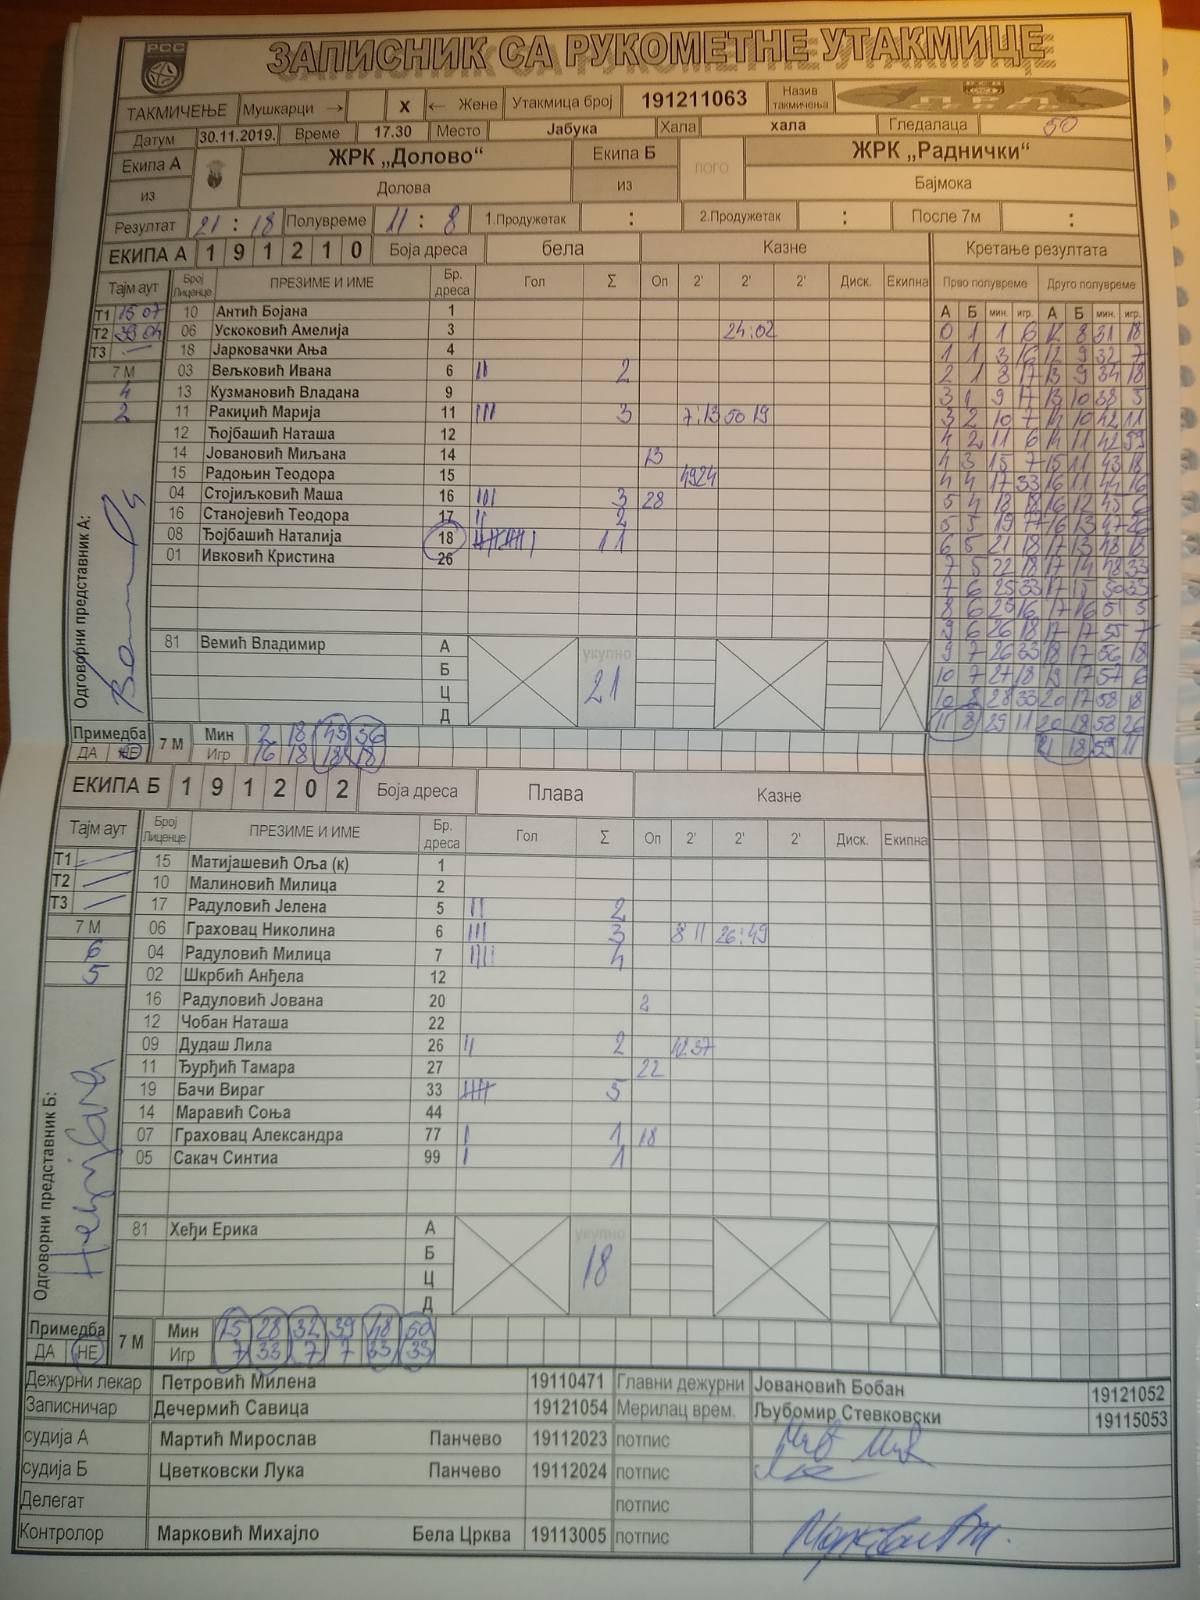 РСС
ЗАПИСНИК СА РУКОМЕТНЕ УТАКМИЦЕ
ТАКМИЧЕЊЕ Мушкарци → X ← Жене Утакмица број 191211063 Назив такмичења
Датум 30.11.2019. Време 17.30 Место Јабука Хала хала Гледалаца 50
Екипа А ЖРК „Долово“ Екипа Б лого ЖРК „Раднички“
из Долова из Бајмока
Резултат 21 : 18 Полувреме 11 : 8 1.Продужетак : 2.Продужетак : После 7м :
ЕКИПА А 1 9 1 2 1 0 Боја дреса бела Казне Кретање резултата
Тајм аут Број Лиценце ПРЕЗИМЕ И ИМЕ Бр. дреса Гол Σ Оп 2' 2' 2' Диск. Екипна Прво полувреме Друго полувреме
А Б мин. игр. А Б мин. игр.
Т1 15 07 10 Антић Бојана 1
Т2 39 04 06 Ускоковић Амелија 3 24:02 0 1 1 6 12 8 31 18
Т3 — 18 Јарковачки Ања 4 1 1 3 16 12 9 32 7
7 М 03 Вељковић Ивана 6 II 2 2 1 8 17 13 9 34 18
4 13 Кузмановић Владана 9 3 1 9 17 13 10 38 5
2 11 Ракиџић Марија 11 III 3 7:13 50 19 3 2 10 7 14 10 42 11
12 Ћојбашић Наташа 12 4 2 11 6 14 11 42 99
14 Јовановић Миљана 14 13 4 3 15 7 15 11 43 18
15 Радоњин Теодора 15 4924 4 4 17 33 16 11 44 16
04 Стојиљковић Маша 16 III 3 28 5 4 18 18 16 12 45 6
16 Станојевић Теодора 17 II 2 5 5 19 77 16 13 47 26
08 Ћојбашић Наталија 18 11 6 5 21 18 17 13 48 18
01 Ивковић Кристина 26 7 5 22 18 17 14 48 33
7 6 25 33 17 15 50 33
8 6 25 16 17 16 51 5
9 6 26 18 17 17 55 7
81 Вемић Владимир А укупно 9 7 26 33 18 17 56 18
Б 21 10 7 27 18 19 17 57 6
Ц 10 8 28 33 20 17 58 18
Д 11 8 29 11 20 18 58 26
21 18 59 11
Одговорни представник А:
Примедба 7 М Мин 2 18 43 56
ДА НЕ Игр 16 18 18 18
ЕКИПА Б 1 9 1 2 0 2 Боја дреса Плава Казне
Тајм аут Број Лиценце ПРЕЗИМЕ И ИМЕ Бр. дреса Гол Σ Оп 2' 2' 2' Диск. Екипна
Т1 15 Матијашевић Оља (к) 1
Т2 10 Малиновић Милица 2
Т3 17 Радуловић Јелена 5 II 2
7 М 06 Граховац Николина 6 III 3 8 11 26:49
6 04 Радуловић Милица 7 IIII 4
5 02 Шкрбић Анђела 12
16 Радуловић Јована 20 2
12 Чобан Наташа 22
09 Дудаш Лила 26 II 2 12:37
11 Ђурђић Тамара 27 22
19 Бачи Вираг 33 5
14 Маравић Соња 44
07 Граховац Александра 77 I 1 18
05 Сакач Синтиа 99 I 1
81 Хеђи Ерика А укупно
Б 18
Ц
Д
Одговорни представник Б:
Примедба 7 М Мин 15 28 32 39 48 50
ДА НЕ Игр 7 33 7 7 33 33
Дежурни лекар Петровић Милена 19110471 Главни дежурни Јовановић Бобан 19121052
Записничар Дечермић Савица 19121054 Мерилац врем. Љубомир Стевковски 19115053
судија А Мартић Мирослав Панчево 19112023 потпис
судија Б Цветковски Лука Панчево 19112024 потпис
Делегат потпис
Контролор Марковић Михајло Бела Црква 19113005 потпис